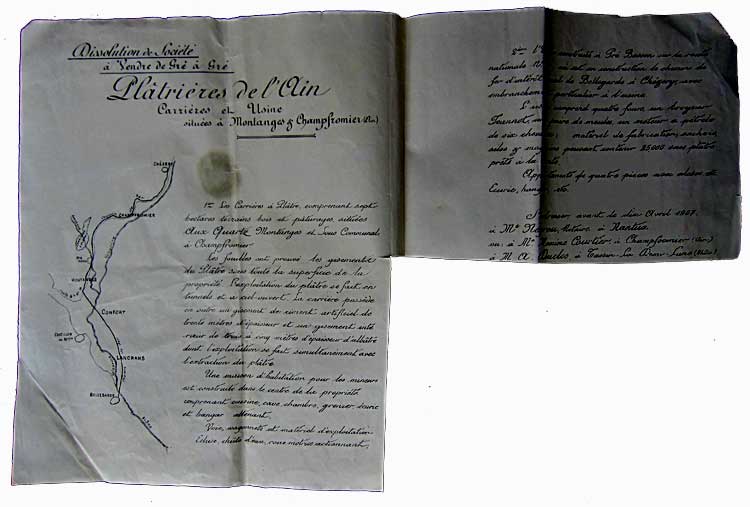 Dissolution de Société
à Vendre de Gré à Gré
Plâtrières de l'Ain
Carrières et Usine
situées à Montanges & Champfromier (Ain)
CHÉZERY
CHAMPFROMIER
MONTANGES
CONFORT
LANCRANS
BELLEGARDE
RHÔNE
1º Les Carrières à Plâtre, comprenant sept
hectares terrains bois et pâturages, situées
Aux Quarts Montanges et Sous Communal
à Champfromier
Les fouilles ont prouvé les gisements
du Plâtre sous toute la superficie de la
propriété. L'exploitation du plâtre se fait en
tunnels et à ciel-ouvert. La carrière possède
en outre un gisement de ciment artificiel de
trente mètres d'épaisseur et un gisement inté
rieur de trois à cinq mètres d'épaisseur d'albâtre
dont l'exploitation se fait simultanément avec
l'extraction du plâtre.
Une maison d'habitation pour les mineurs
est construite dans le centre de la propriété
comprenant cuisine, cave, chambre, grenier, écurie
et hangar attenant.
Voie, wagonnets et matériel d'exploitation
Ecluse, chûte d'eau, roue motrice actionnant,
construite à Pré Basson sur la route
nationale en construction le chemin de
fer d'intérêt de Bellegarde à Chézery, avec
embranchement particulier à l'usine.
comprend quatre fours, un broyeur
Jeannot, une paire de meule, un moteur à pétrole
de six chevaux; matériel de fabrication, sacherie,
salles & magasins pouvant contenir 25000 sacs plâtre
prêts à la vente.
Appartements de quatre pièces avec
Ecurie, hangar, etc.
S'adresser avant le dix Avril 1907.
à Me Notaire à Nantua
ou à Mr Courtier à Champfromier (Ain)
à M. A. à Tassin La Demi-Lune (Rhône)